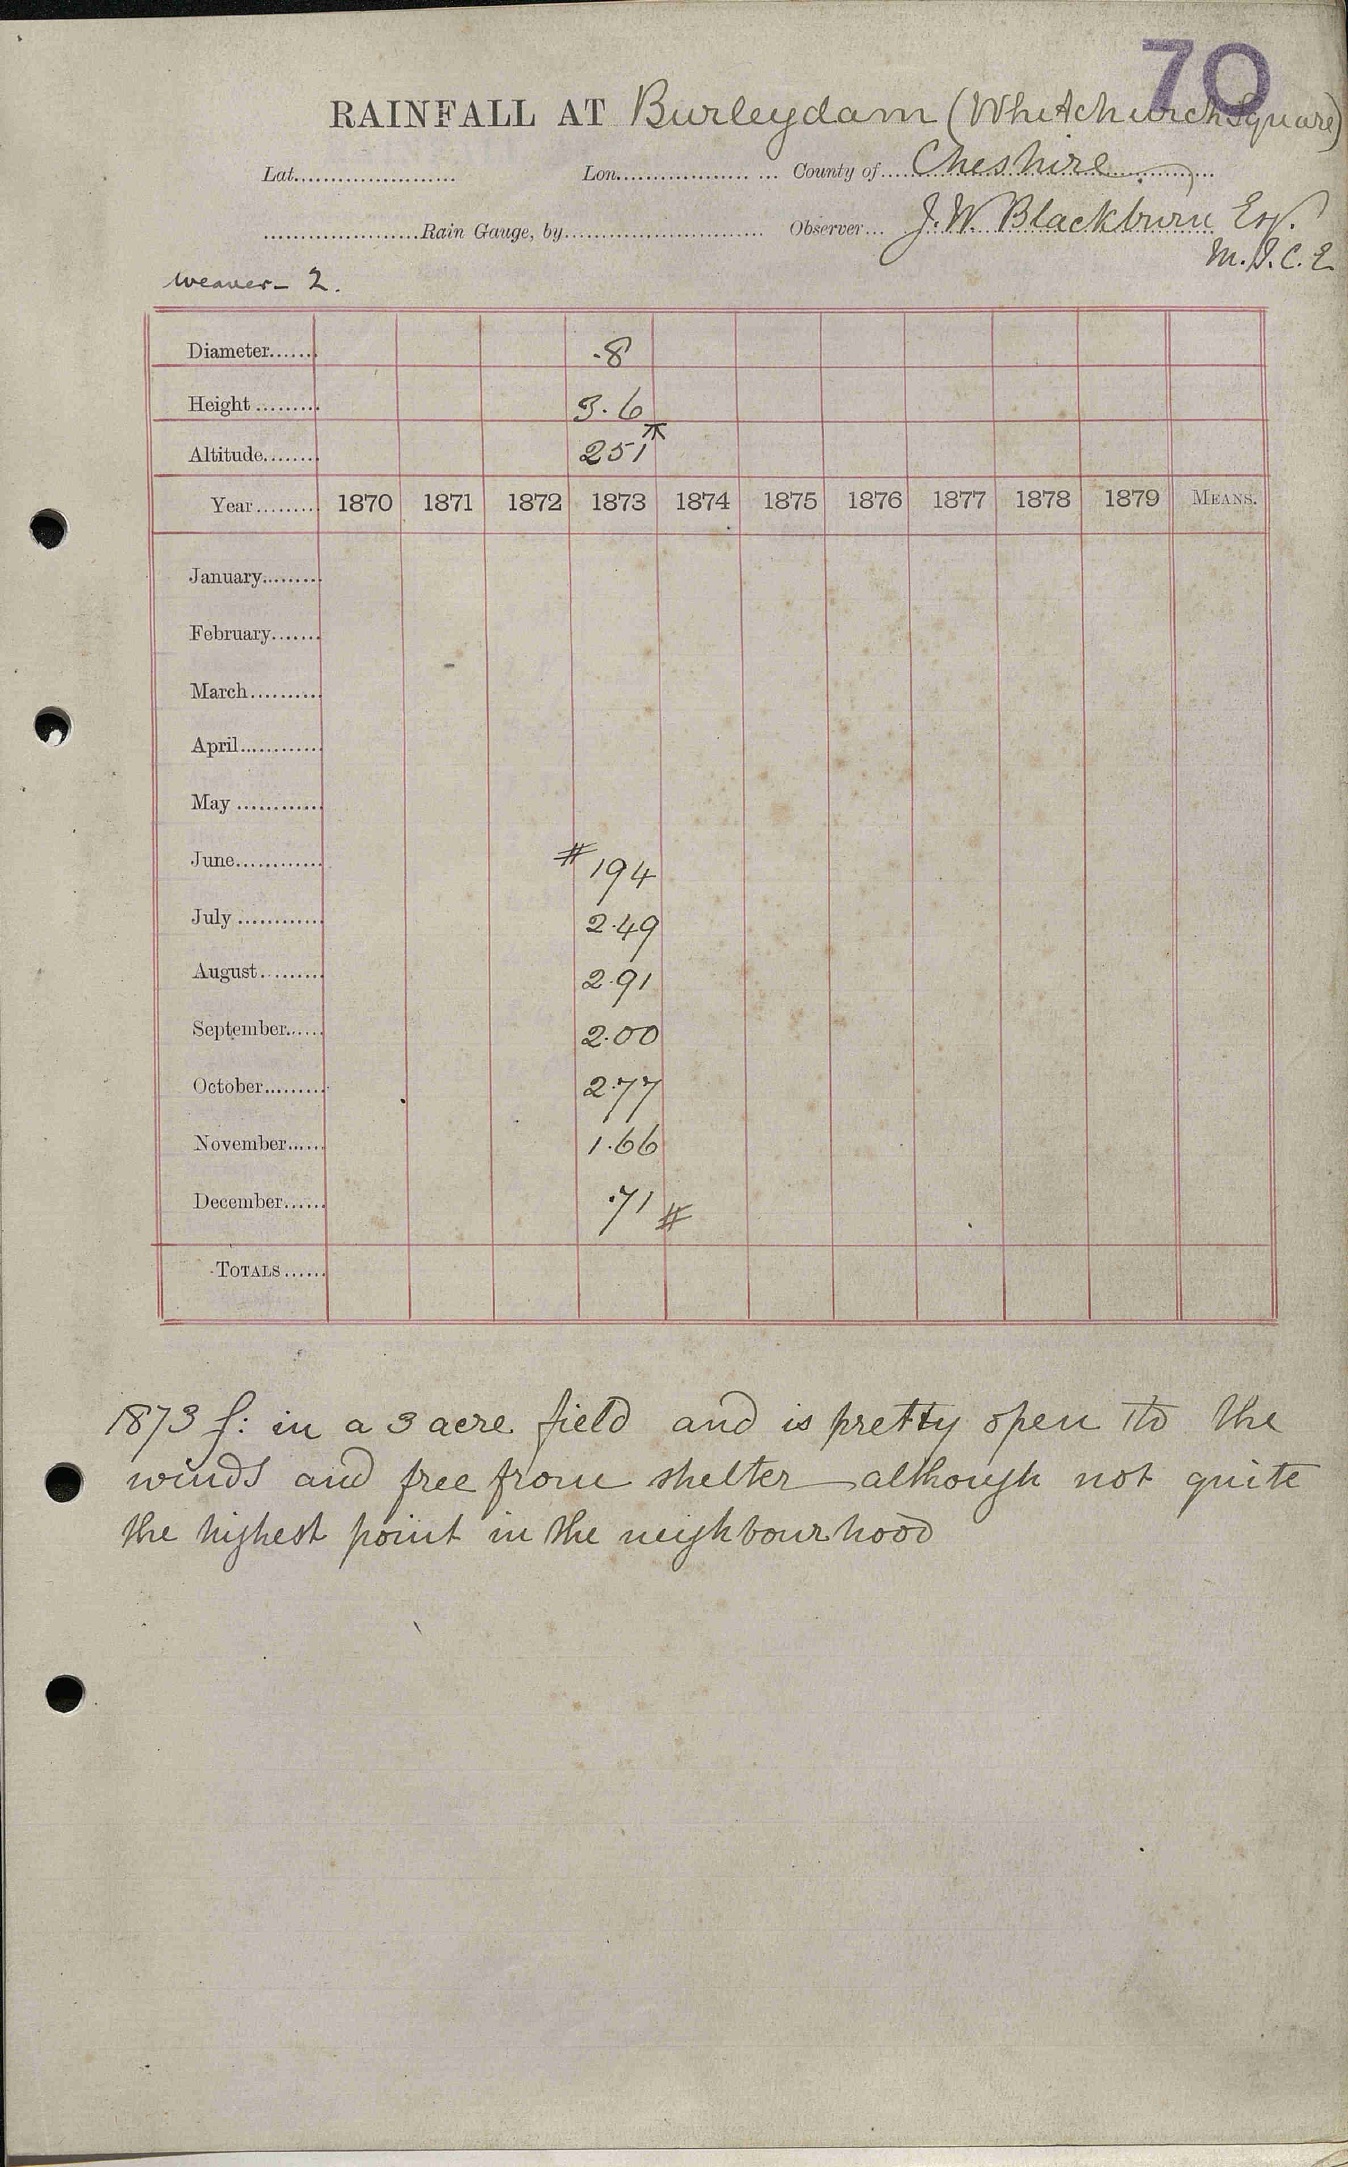 70
RAINFALL AT Burleydam (Whitchurch Square)
Lat...................... Lon.................. ... County of.....Cheshire..................
.....................Rain Gauge, by........................... Observer... J. W. Blackburn Esq.
M.I.C.E
Weaver - 2.
Diameter....... .8
Height ......... 3.6
Altitude........ 251
Year......... 1870 1871 1872 1873 1874 1875 1876 1877 1878 1879 MEANS.
January.........
February.......
March..........
April............
May ............
June............ # 194
July ............ 2.49
August......... 2.91
September...... 2.00
October......... 2.77
November...... 1.66
December...... .71 #
TOTALS......
1873 f: in a 3 acre field and is pretty open to the
winds and free from shelter although not quite
the highest point in the neighbourhood